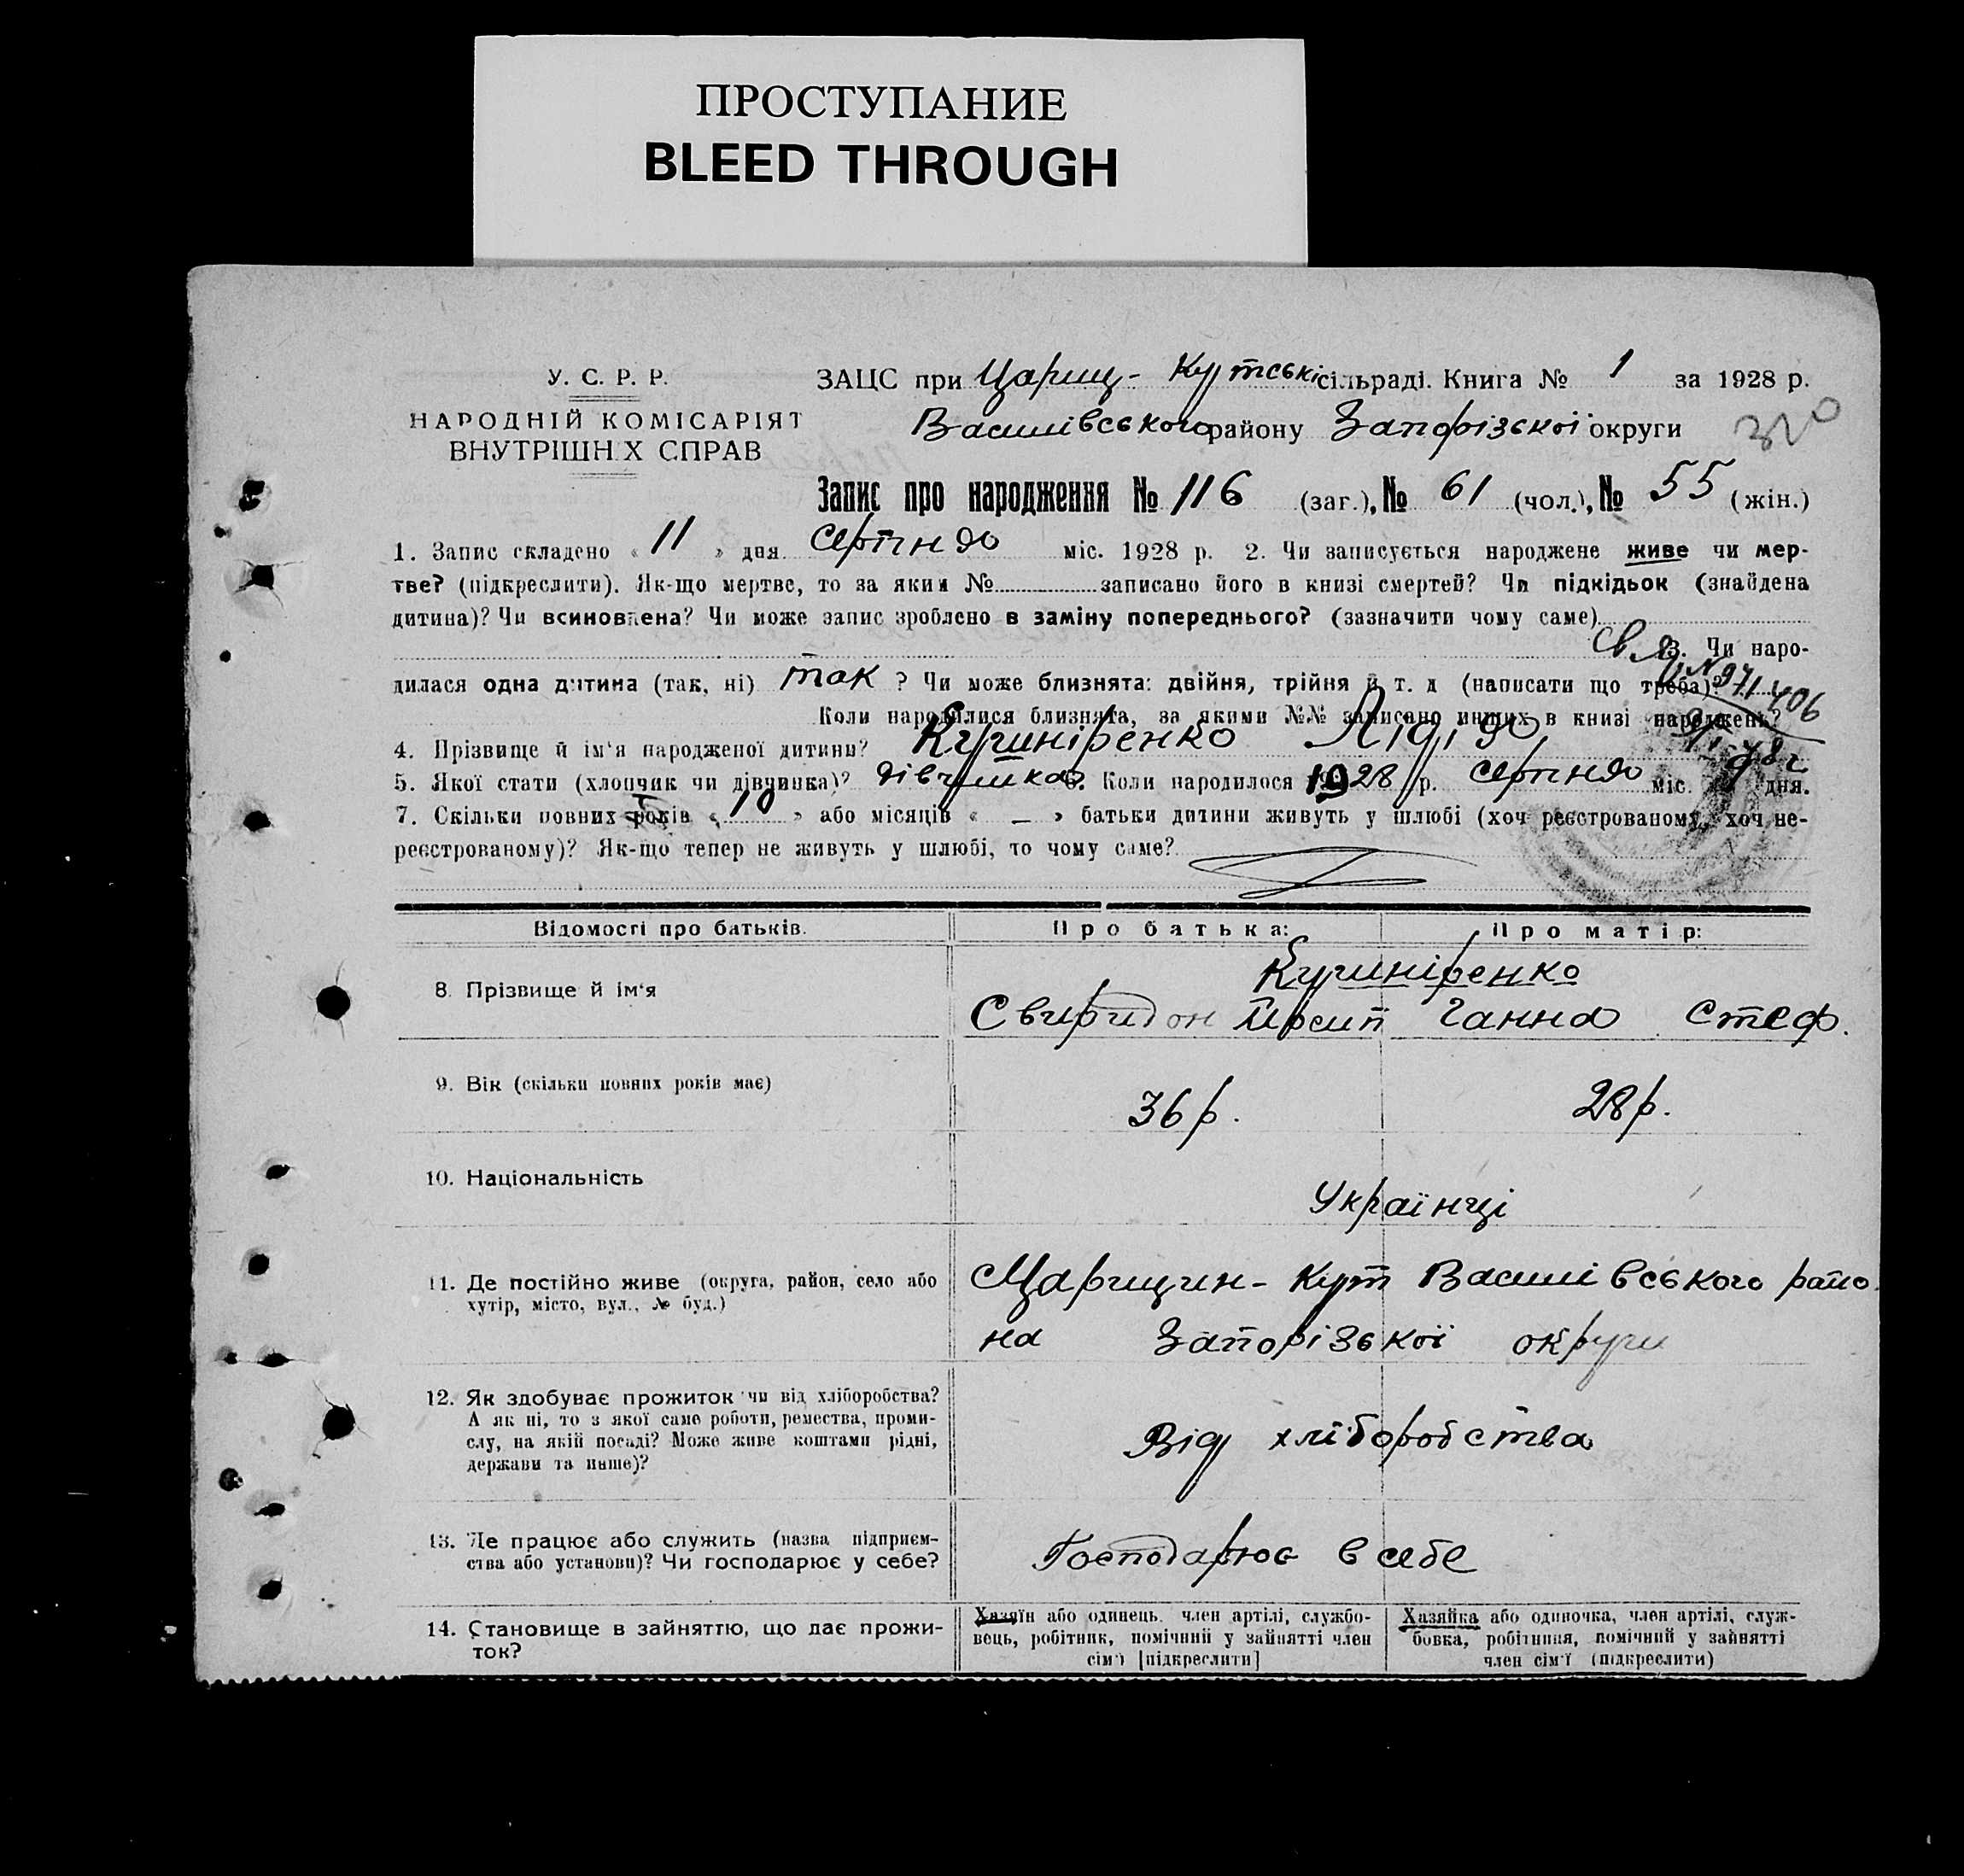 ПРОСТУПАНИЕ
BLEED THROUGH
У. С. Р. Р.
НАРОДНІЙ КОМІСАРІЯТ
ВНУТРІШНІХ СПРАВ
ЗАЦС при Царищ-Кутські сільраді. Книга № 1 за 1928 р.
Василівського району Запорізької округи
320
Запис про народження № 116 (заг.), № 61 (чол.), № 55 (жін.)
1. Запис складено « 11 » дня серпня міс. 1928 р. 2. Чи записується народжене живе чи мер-
тве? (підкреслити). Як-що мертве, то за яким № записано його в книзі смертей? Чи підкідьок (знайдена
дитина)? Чи всиновлена? Чи може запис зроблено в заміну попереднього? (зазначити чому саме)
3. Чи наро-
дилася одна дитина (так, ні) так ? Чи може близнята: двійня, трійня й т. д (написати що треба)?
Коли народилися близнята, за якими №№ записано инших в книзі народжень?
4. Прізвище й ім'я народженої дитини? Кушніренко Лідія
5. Якої стати (хлопчик чи дівчинка)? дівчинка 6. Коли народилося 1928 р. серпня міс. дня.
7. Скільки повних років « 10 » або місяців « — » батьки дитини живуть у шлюбі (хоч реєстрованому, хоч не-
реєстрованому)? Як-що тепер не живуть у шлюбі, то чому саме?
Відомості про батьків. Про батька: Про матір:
Кушніренко
8. Прізвище й ім'я Свиридон Йосип Ганна Стеф.
9. Вік (скільки повних років має) 36 р. 28 р.
10. Національність Українці
11. Де постійно живе (округа, район, село або Царицин-Кут Василівського райо
хутір, місто, вул., № буд.) на Запорізької округи
12. Як здобуває прожиток чи від хліборобства?
А як ні, то з якої саме роботи, ремества, проми-
слу, на якій посаді? Може живе коштами рідні, Від хліборобства
держави та инше)?
13. Де працює або служить (назва підприєм- Господарює в себе
ства або установи)? Чи господарює у себе?
14. Становище в зайняттю, що дає прожи-
ток?
Хазяїн або одинець, член артілі, службо-
вець, робітник, помічний у зайнятті член
сім'ї [підкреслити]
Хазяйка або одиночка, член артілі, служ-
бовка, робітниця, помічний у зайнятті
член сім'ї (підкреслити)